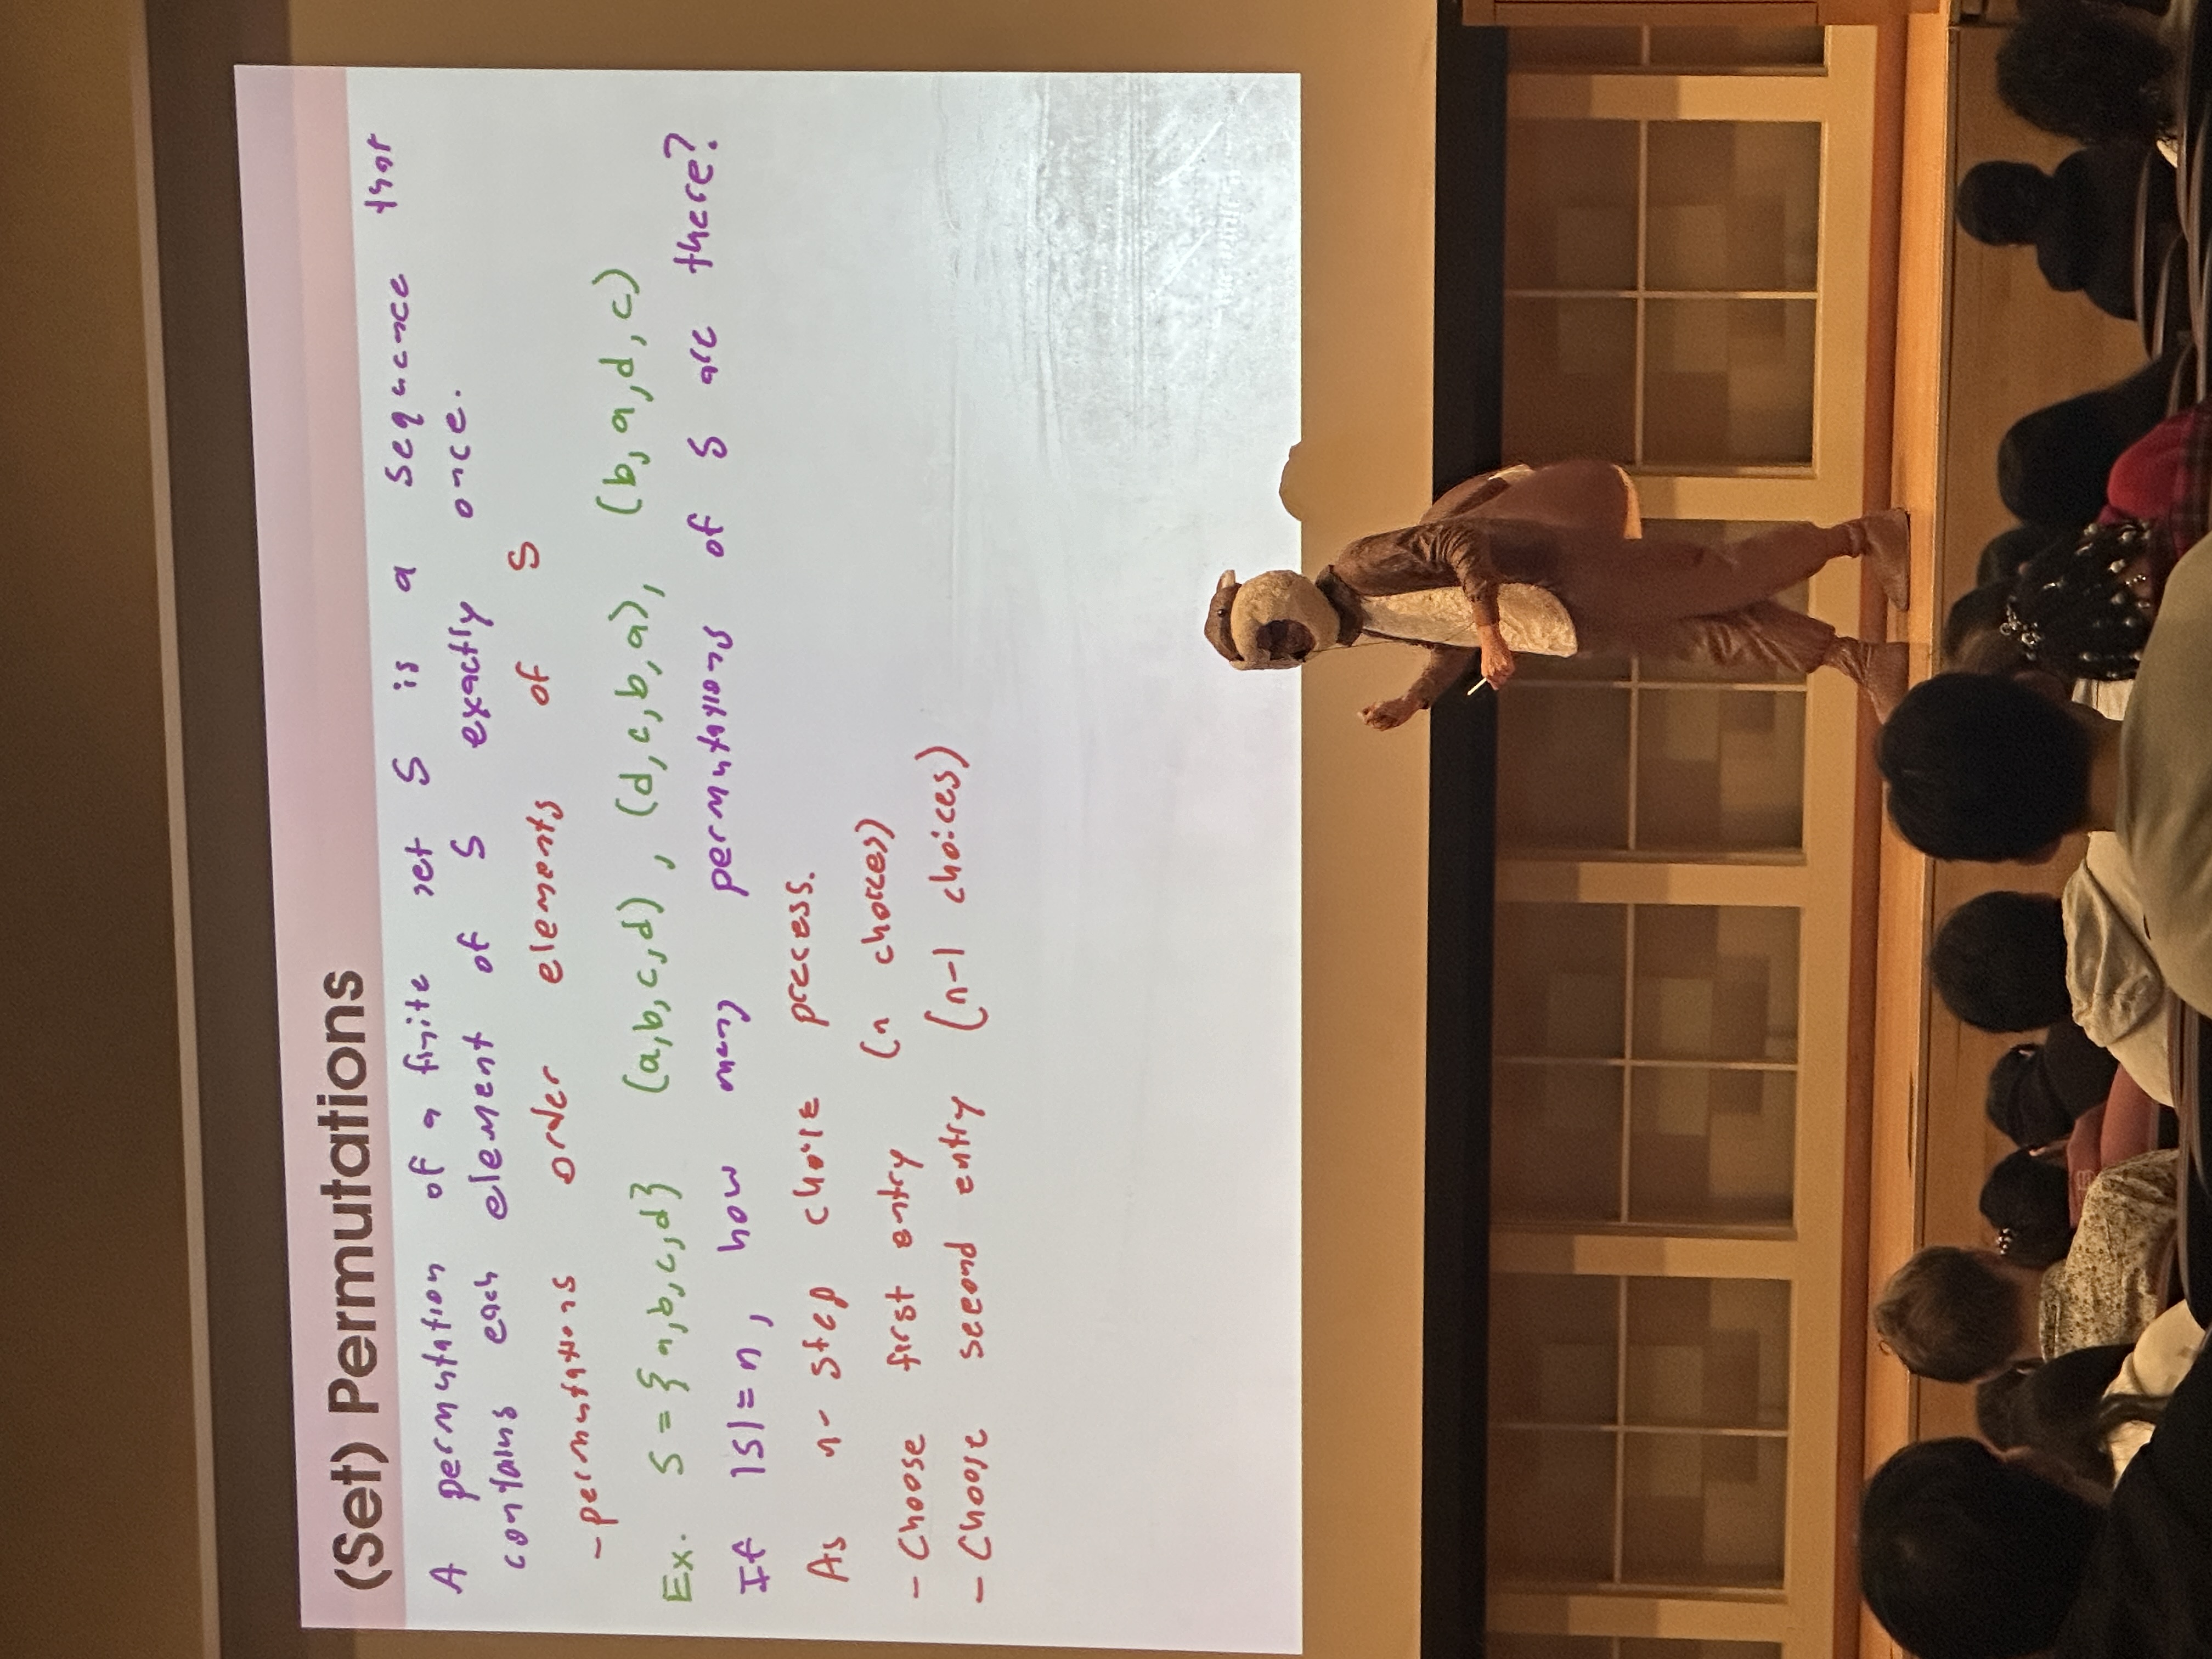 (Set) Permutations
A permutation of a finite set S is a sequence that
contains each element of S exactly once.
- permutations order elements of S
Ex. S = {a,b,c,d} (a,b,c,d), (d,c,b,a), (b,a,d,c)
If |S| = n, how many permutations of S are there?
As n-step choice process.
- Choose first entry (n choices)
- Choose second entry (n-1 choices)